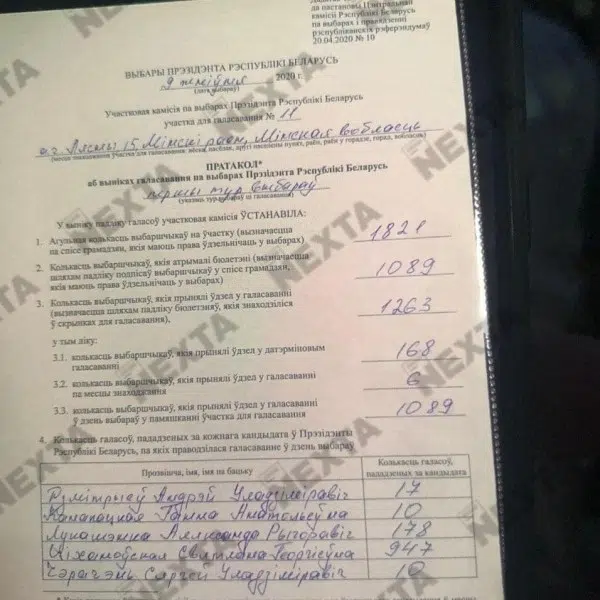 да пастановы Цэнтральнай
камісіі Рэспублікі Беларусь
па выбарах і правядзенні
рэспубліканскіх рэферэндумаў
20.04.2020 № 10
ВЫБАРЫ ПРЭЗІДЭНТА РЭСПУБЛІКІ БЕЛАРУСЬ
9 жніўня 2020 г.
(дата выбараў)
Участковая камісія па выбарах Прэзідэнта Рэспублікі Беларусь
участка для галасавання № 11
а.г. 15, Мінскі раён, Мінская вобласць
(месца знаходжання участка для галасавання: вёска, пасёлак, другі населены пункт, раён, раён у горадзе, горад, вобласць)
ПРАТАКОЛ*
аб выніках галасавання на выбарах Прэзідэнта Рэспублікі Беларусь
першы тур выбараў
(указаць тур выбараў ці галасаванне)
У выніку падліку галасоў участковая камісія ЎСТАНАВІЛА:
1. Агульная колькасць выбаршчыкаў на ўчастку (вызначаецца
па спісе грамадзян, якія маюць права ўдзельнічаць у выбарах) 1821
2. Колькасць выбаршчыкаў, якія атрымалі бюлетэні (вызначаецца
шляхам падліку подпісаў выбаршчыкаў у спісе грамадзян,
якія маюць права ўдзельнічаць у выбарах) 1089
3. Колькасць выбаршчыкаў, якія прынялі ўдзел у галасаванні
(вызначаецца шляхам падліку бюлетэняў, якія знаходзіліся
ў скрынках для галасавання), 1263
у тым ліку:
3.1. колькасць выбаршчыкаў, якія прынялі ўдзел у датэрміновым
галасаванні 168
3.2. колькасць выбаршчыкаў, якія прынялі ўдзел у галасаванні
па месцы знаходжання 6
3.3. колькасць выбаршчыкаў, якія прынялі ўдзел у галасаванні
ў дзень выбараў у памяшканні ўчастка для галасавання 1089
4. Колькасць галасоў, пададзеных за кожнага кандыдата ў Прэзідэнты
Рэспублікі Беларусь, па якіх праводзілася галасаванне ў дзень выбараў
Прозвішча, імя, імя па бацьку Колькасць галасоў,
пададзеных за кандыдата
Дзмітрыеў Андрэй Уладзіміравіч 17
Канапацкая Ганна Анатольеўна 10
Лукашэнка Аляксандр Рыгоравіч 178
Ціханоўская Святлана Георгіеўна 947
Чэрачэнь Сяргей Уладзіміравіч 10
NEXTA
NEXTA
NEXTA
NEXTA
NEXTA
NEXTA
NEXTA
NEXTA